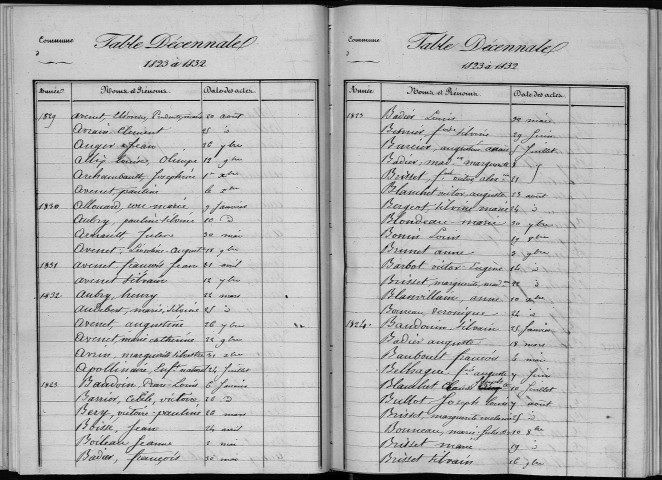 Commune
d
Table Décennale
1823 à 1832
Année Noms et Prénoms Date des actes
1829 Avenet, Eléonore, Prudente, marie 20 août
Arrain Clément 25 d
Auger Jean 26 7bre
Allig Louise, Olimpe 12 9bre
Archambault, Joséphine 1er xbre
Avenet pauline 6 xbre
1830 Allouard, rose marie 9 Janvier
Aubry, pauline silvine 10 d
Arnault, Jules 30 mai
Avenet, Léontine August 18 9bre
1831 Avenet françois Jean 21 avril
Avenet silvain 12 7bre
1832 Aubry henry 22 mars
Audebert, marie, silvine 25 d
Avenet, augustine 26 7bre
Avenet, marie catherine 28 9bre
Avrin, marguerite silvestre 31 xbre
Apollinaire, Enft naturel 24 Juillet
1823 Baudoin, Denis Louis 6 Janvier
Barrier, Cécile, victoire 20 d
Bery, victoire pauline 20 mars
Boisse, Jean 24 avril
Boileau Jeanne 2 mai
Badier, françois 30 mai
Commune
d
Table Décennale
1823 à 1832
Année Noms et Prénoms Date des actes
1823 Badier Louis 30 mai
silvine 29 Juin
Burcier, augustine anais 5 Juillet
Badier, marie marguerite 8
Brisset 21
Blanchet victor, auguste 23 août
Bergeot silvine marie 24 d
Blondeau marie 20 7bre
Bonin Louis 19 8bre
Brunet anne 2 9bre
Barbot victor Eugène 14 d
Brisset, marguerite 22 d
Blanvillain, anne 20 xbre
Bonneau véronique 24 d
1824 Baudouin silvain 25 Janvier
Badier auguste 18 mars
Bauboult françois 6 mai
auguste 7 Juin
Blanchet 10 Juillet
Bullot Joseph Louis 7 août
Brisset marguerite 25 d
Bonneau, marie Julie 10 8bre
Brisset marie 19 d
Brisset silvain 26 9bre